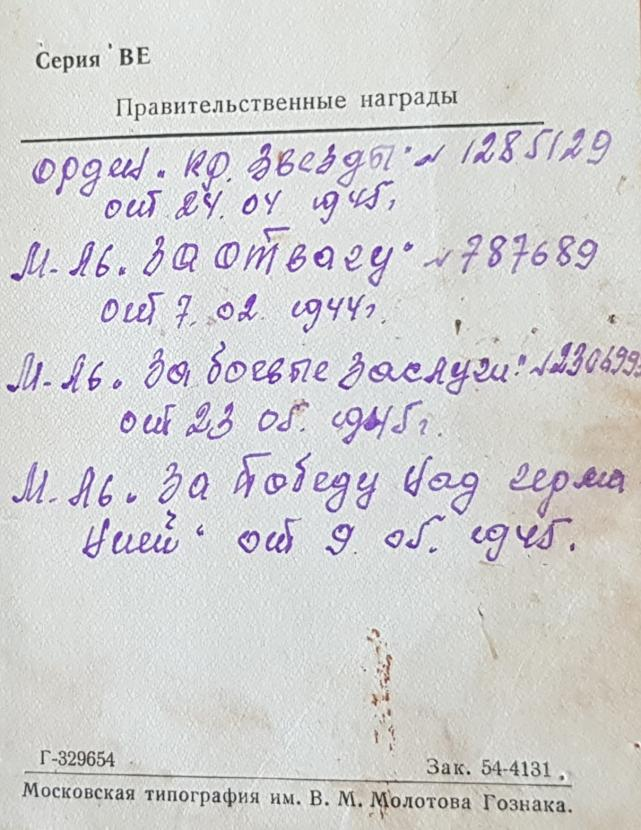 Серия ВЕ
Правительственные награды
Орден. кр. Звезды" № 1285129
от 24. 04 1945г
М-ль. За отвагу" № 787689
от 7. 02. 1944г.
М-ль. За боевые заслуги" №
от 23 05. 1945г.
М-ль. За Победу над герма
нией" от 9. 05. 1945.
Г-329654
Зак. 54-4131.
Московская типография им. В. М. Молотова Гознака.